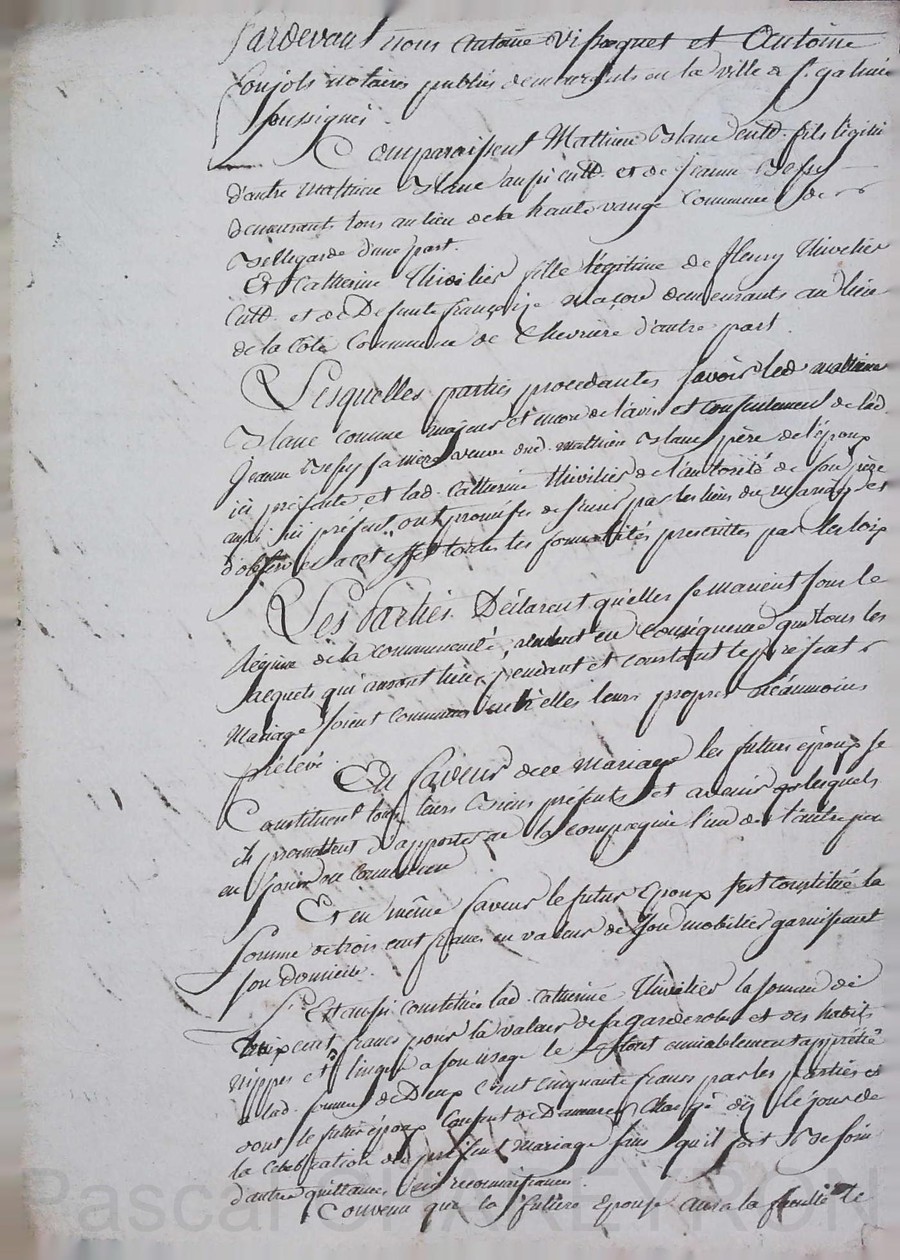 Pardevant nous Antoine Vipaquet et Antoine
Soujols notaires publics demeurants en la ville de st galmier
soussignés.
Comparaissent Mathieu Blanc cult. fils légiti
d'autre Mathieu Blanc aussi cult. et de Jeanne Bessy
demeurant tous au lieu de la haute vange Commune de
Bellegarde d'une part.
Et Catherine Thivilier fille légitime de fleury Thivelier
Cult. et de Defunte françoise Maçon demeurants au lieu
de la Côte Commune de Chevriere d'autre part.
Lesquelles parties procedantes savoir led. mathieu
Blanc comme majeur et encore de l'avis et consentement de lad.
Jeanne Bessy sa mere veuve dud. mathieu Blanc père de l'époux
ici présente et lad. Catherine Thivilier de l'autorité de son père
aussi ici présent, ont promis de s'unir par les liens du mariage et
d'observer a cet effet toutes les formalités prescrittes par les loix
Les Parties Déclarent qu'elles se marient sous le
Régime de la communauté, veulent en Conséquence que tous les
acquets qui auront lieu pendant et constant le présent
Mariage soient communs entr'elles leurs propres néanmoins
prélevé.
En faveur de ce mariage les futurs époux se
Constituent tous leurs Biens présents et avenir lesquels
ils promettent d'apporter en la compagnie l'un de l'autre pour
en jouir en commun
Et en même faveur le futur Epoux s'est constitué la
somme de trois cent francs en valeur de son mobilier garnissant
son domicile.
S'Est aussi constituée lad. Catherine Thivilier la somme de
Deux cent francs pour la valeur de sa garderobe et des habits
nippes et linges a son usage le tout amiablement apprétié
a lad. somme de Deux Cent cinquante francs par les parties et
dont le futur époux Consent de Demeurer Chargé dès le jour de
la Célébration du présent mariage sans qu'il soit Besoin
d'autre quittance ni reconnaissance.
Convenu que la future Epouse aura la faculté de
Pascal PAREYRON